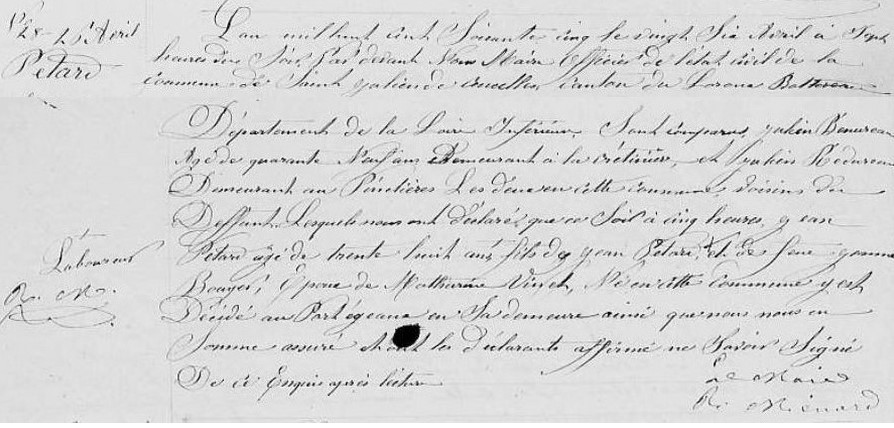 N° 28 - 26 Avril
Petard
L'an mil huit cent Soixante cinq le vingt Six Avril à Sept
heures du Soir Par devant Nous Maire Officier de l'état civil de la
Commune de Saint canton du Loroux Bottereau
Département de la Loire Inférieure, Sont comparus,
Agé de quarante Neuf ans Demeurant à la et
Demeurant au Les deux en cette commune, voisins du
Deffunt Lesquels nous ont déclaré, que ce Soir à cinq heures, jean
Petard agé de trente huit ans, fils de jean Petard, et de feue jeanne
Epoux de Mathurine Né en cette Commune y est
Décédé au en Sa demeure ainsi que nous nous en
Somme assuré et ont les déclarants affirmé ne Savoir Signé
De ce Enquis après lecture
Laboureur
R. M.
Le Maire
R. Ménard